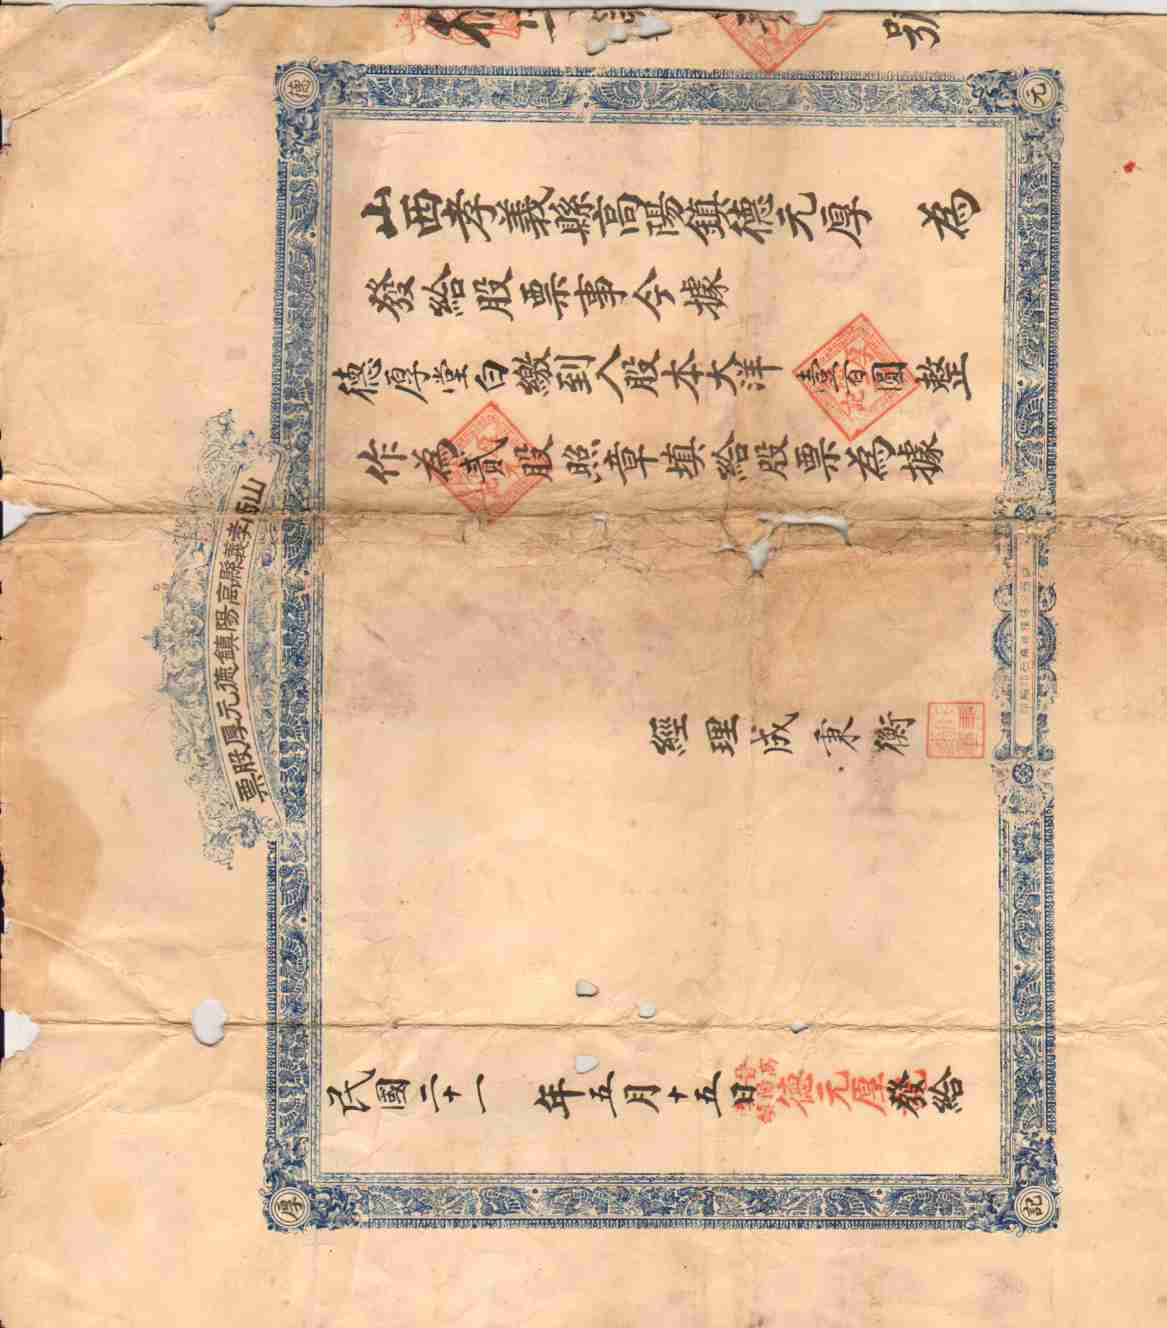 山西孝義縣高陽鎮德元厚股票
德
元
厚
記
號
山西孝義縣高陽鎮德元厚 為
發給股票事今據
德厚堂白繳到入股本大洋壹百圓整
作為貳股照章填給股票為據
經理成秉衡
民國二十一年五月十五日德元厚發給